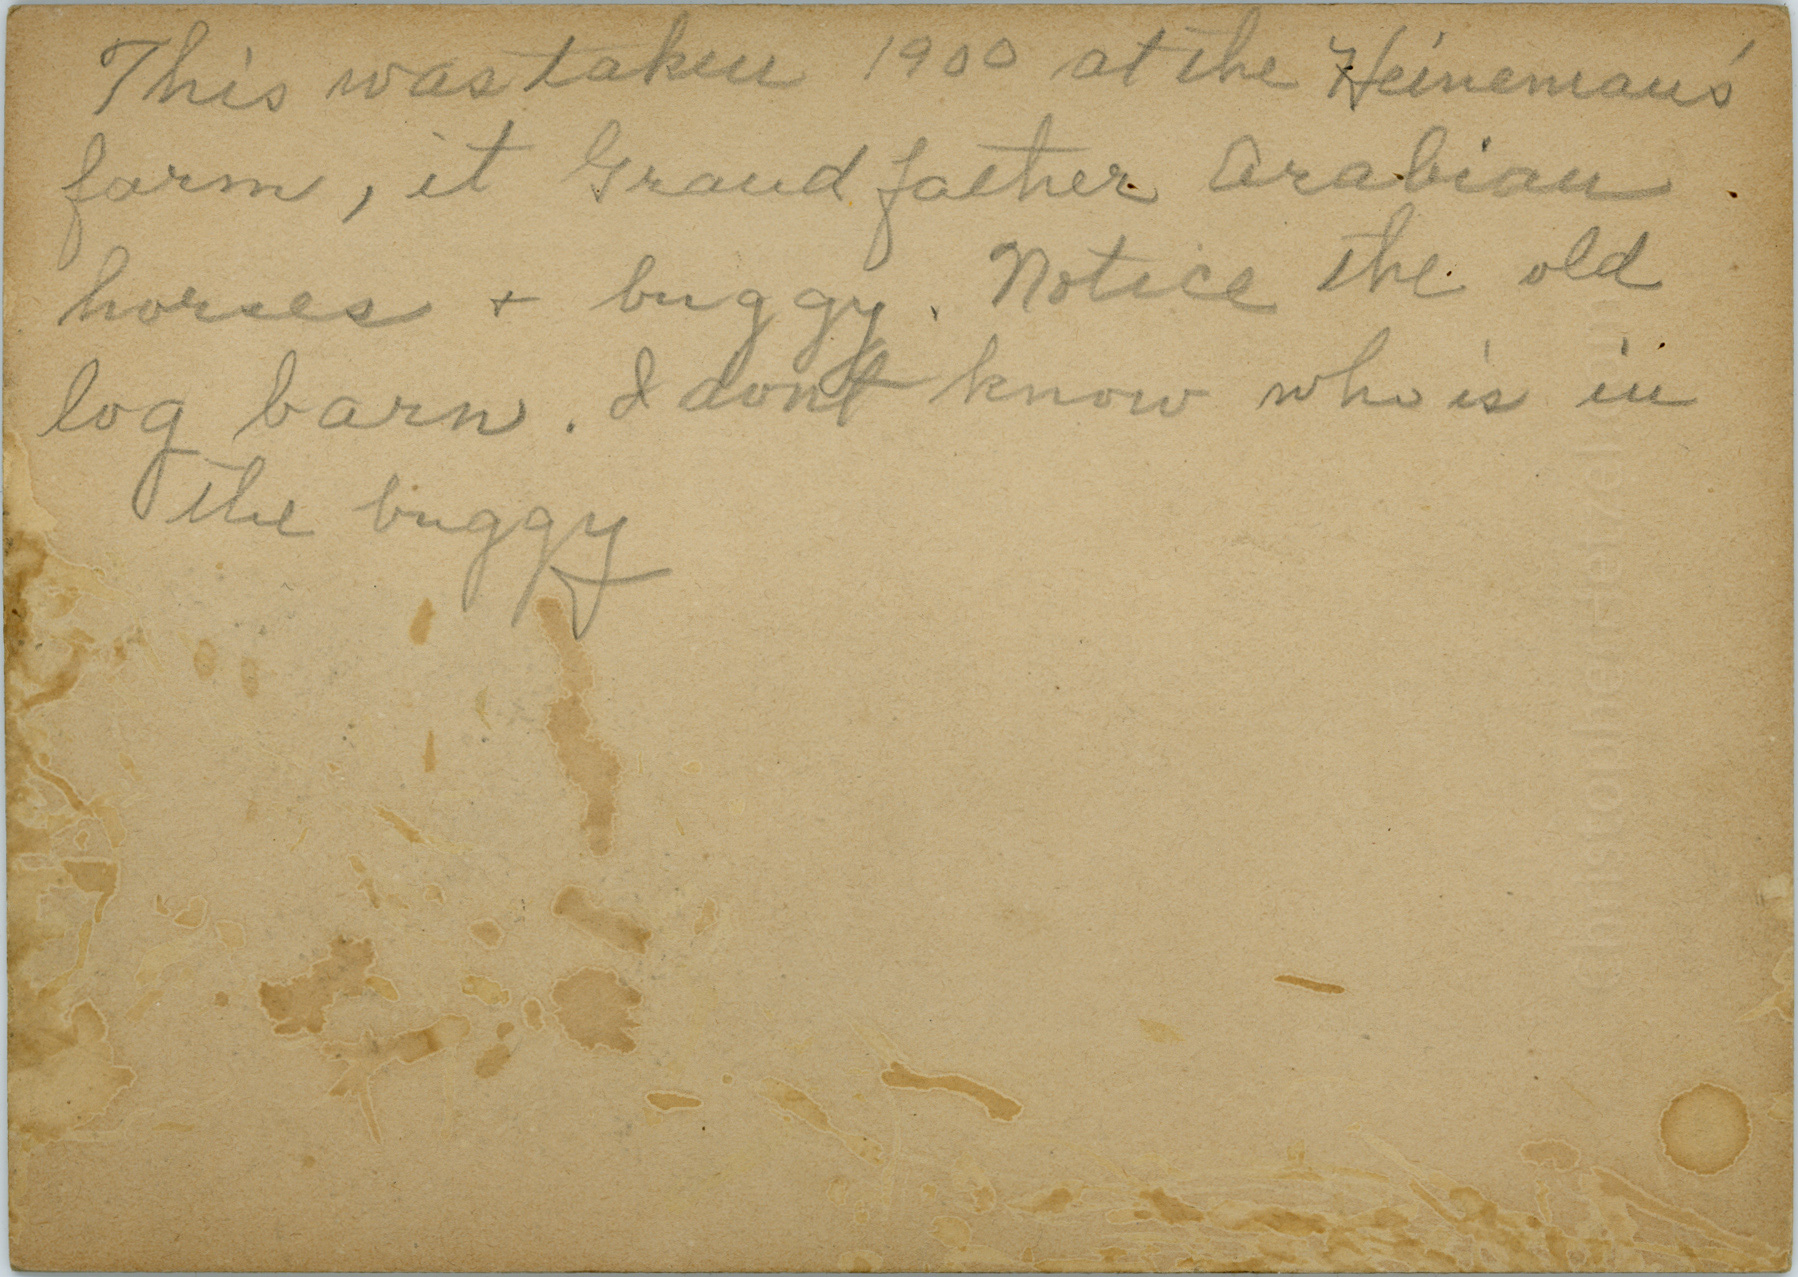 This was taken 1900 at the Heineman's
farm, it Grandfather Arabian
horses + buggy. Notice the old
log barn. I dont know who is in
the buggy
christopher-jeizel.com